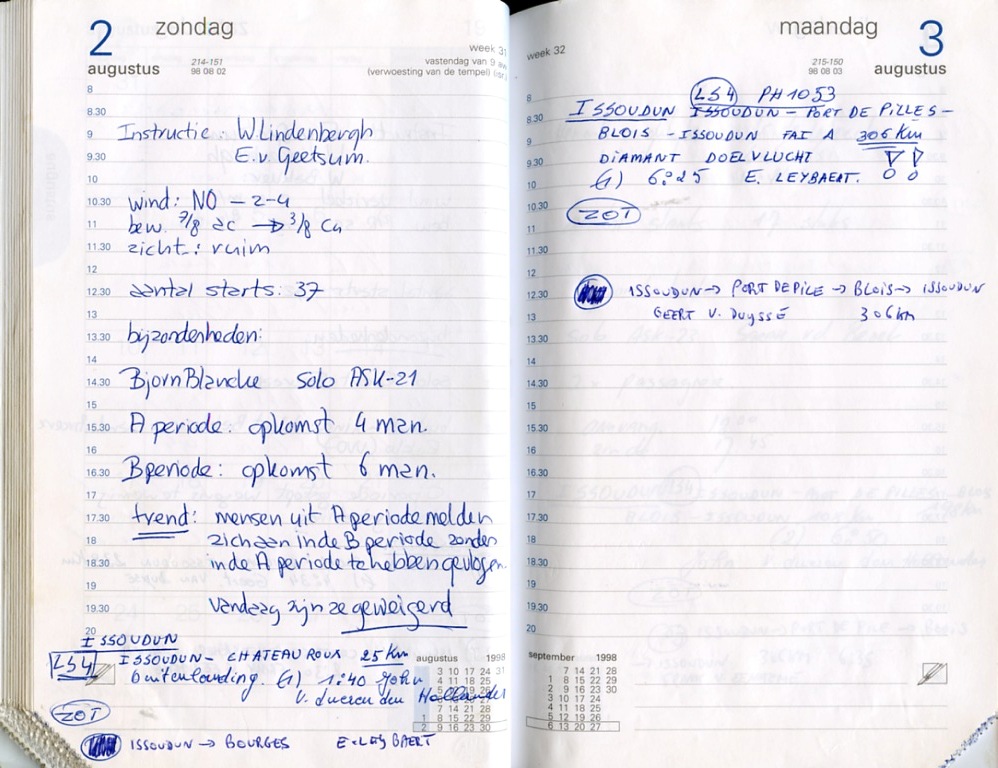 2 zondag
augustus
214-151
98 08 02
week 31
vastendag van 9
(verwoesting van de tempel)
8
8.30
9 Instructie: W. Lindenbergh
9.30 E.v. Geetsum.
10
10.30 wind: NO - 2-4
11 bew. 7/8 ac → 3/8 Cu
11.30 zicht: ruim
12
12.30 aantal starts: 37
13
13.30 bijzonderheden:
14
14.30 Bjorn Blancke solo ASK-21
15
15.30 A periode: opkomst 4 man.
16
16.30 B periode: opkomst 6 man.
17
17.30 trend: mensen uit A periode melden
18 zich aan in de B periode zonder
18.30 in de A periode te hebben gevlogen.
19
19.30 Vandaag zijn ze geweigerd
20
ISSOUDUN
LS4 ISSOUDUN - CHATEAUROUX 25 km
buitenlanding. (1) 1:40 John
V. dueren den Hollander
ZOT
ISSOUDUN → BOURGES E. LEYBAERT
augustus 1998
3 10 17 24 31
4 11 18 25
5 12 19 26
6 13 20 27
7 14 21 28
1 8 15 22 29
2 9 16 23 30
maandag 3
augustus
215-150
98 08 03
week 32
8 LS4 PH 1053
8.30 ISSOUDUN ISSOUDUN - PORT DE PILLES -
9 BLOIS - ISSOUDUN FAI A 306 Km
9.30 DIAMANT DOELVLUCHT
10 (1) 6:25 E. LEYBAERT.
10.30 ZOT
11
11.30
12
12.30 ISSOUDUN → PORT DE PILE → BLOIS → ISSOUDUN
13 GEERT V. DUYSSÉ 306 km
13.30
14
14.30
15
15.30
16
16.30
17
17.30
18
18.30
19
19.30
20
september 1998
7 14 21 28
1 8 15 22 29
2 9 16 23 30
3 10 17 24
4 11 18 25
5 12 19 26
6 13 20 27